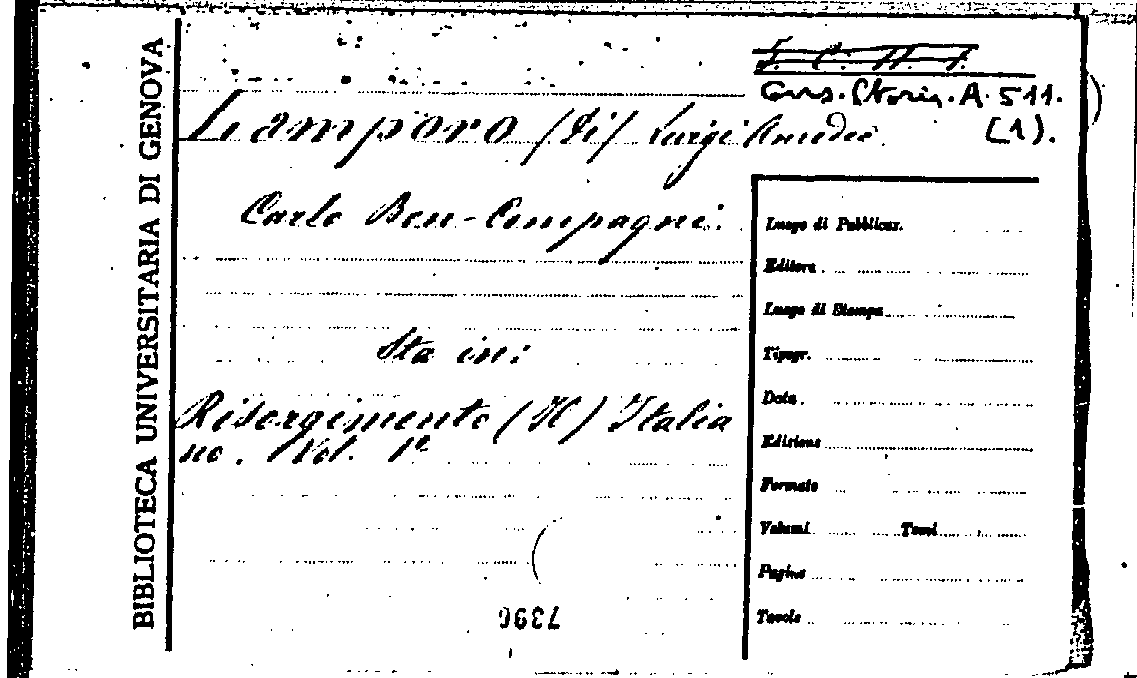 BIBLIOTECA UNIVERSITARIA DI GENOVA
Cons. Storia. A. 511.
(1).
Lamporo (Di) Luigi Amedeo
Carlo Bon-Compagni.
Sta in:
Risorgimento (Il) Italia
no. Vol. 1º
Luogo di Pubblicaz.
Editore
Luogo di Stampa
Tipogr.
Data.
Edizione
Formato
Volumi Tomi
Pagine
Tavole
7396